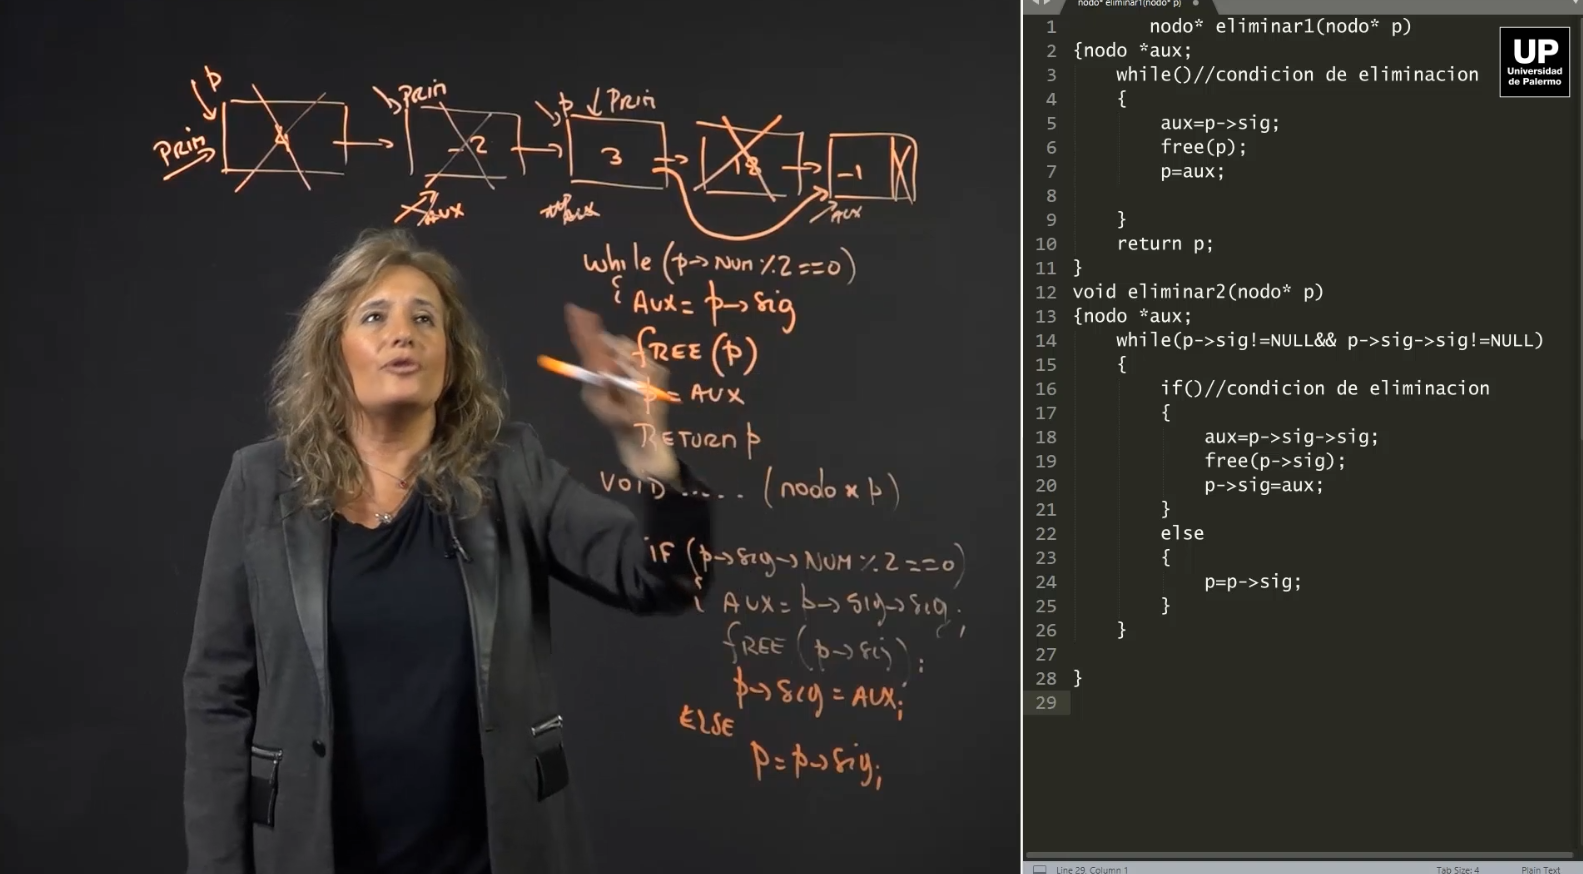 p
PRIM
4
PRIM
-2
AUX
p
PRIM
3
AUX
18
-1
AUX
while (p->NUM%2==0)
{ AUX= p->sig
fREE (p)
p= AUX
RETURN p
VOID ..... (nodo* p)
IF (p->sig->NUM%2==0)
{ AUX= p->sig->sig;
fREE (p->sig);
p->sig = AUX;
ELSE
p=p->sig;
nodo* eliminar1(nodo* p)
1 nodo* eliminar1(nodo* p)
2 {nodo *aux;
3 while()//condicion de eliminacion
4 {
5 aux=p->sig;
6 free(p);
7 p=aux;
8
9 }
10 return p;
11 }
12 void eliminar2(nodo* p)
13 {nodo *aux;
14 while(p->sig!=NULL&& p->sig->sig!=NULL)
15 {
16 if()//condicion de eliminacion
17 {
18 aux=p->sig->sig;
19 free(p->sig);
20 p->sig=aux;
21 }
22 else
23 {
24 p=p->sig;
25 }
26 }
27
28 }
29
UP
Universidad
de Palermo
Line 29, Column 1
Tab Size: 4
Plain Text